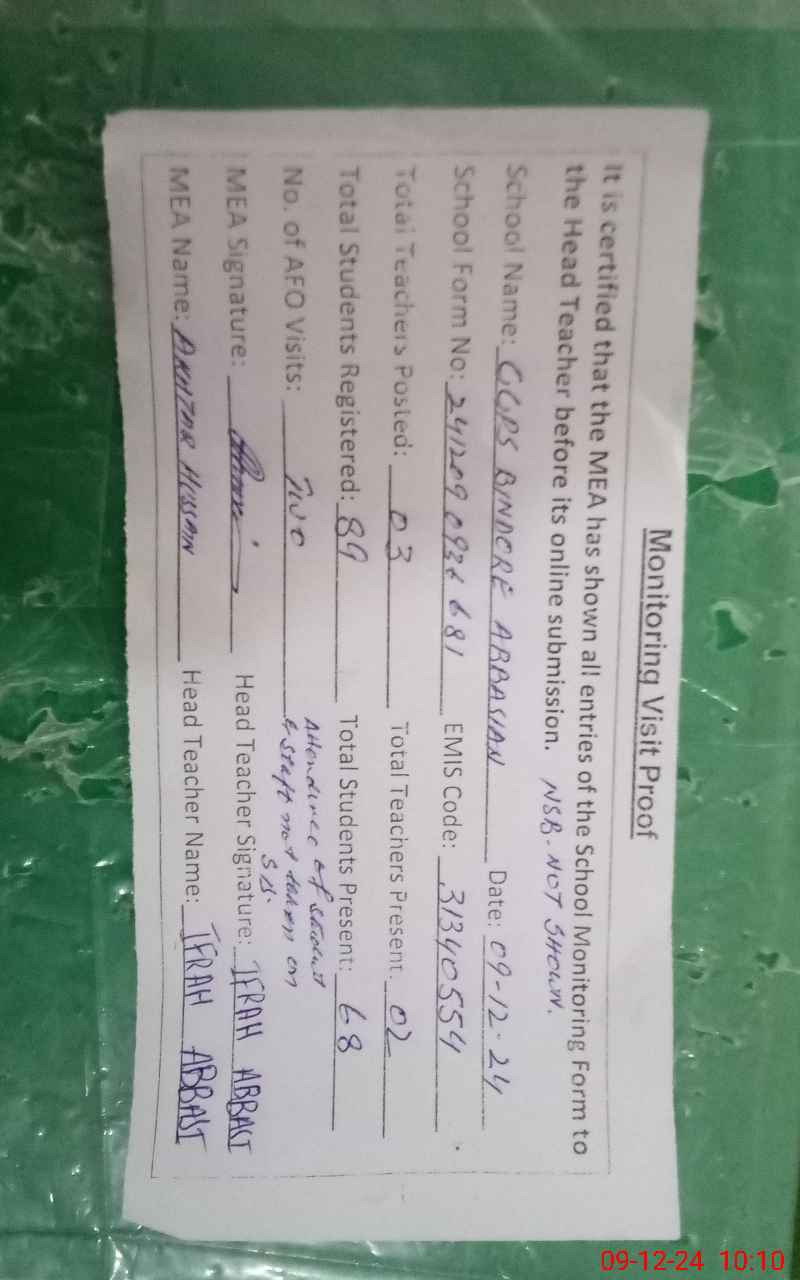 Monitoring Visit Proof
It is certified that the MEA has shown all entries of the School Monitoring Form to
the Head Teacher before its online submission. NSB. NOT SHOWN.
School Name: GGPS BINDORE ABBASIAN Date: 09-12-24
School Form No: 241209 0936 681 EMIS Code: 31340554
Total Teachers Posted: 03 Total Teachers Present: 02
Total Students Registered: 89 Total Students Present: 68
No. of AFO Visits: Two Attendance of student
& staff not taken on
MEA Signature: Head Teacher Signature: IFRAH ABBASI
MEA Name: AKHTAR HUSSAIN Head Teacher Name: IFRAH ABBASI
09-12-24 10:10